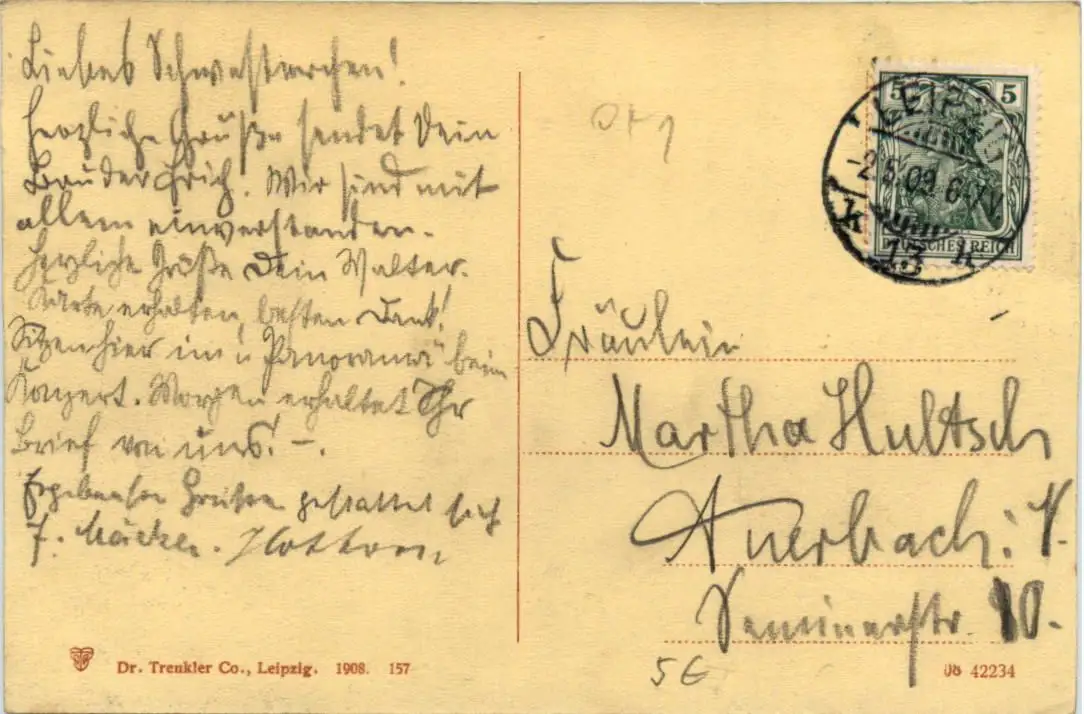 Liebes Schwesterchen!
Herzliche Grüße sendet Dein
Bruder Erich. Wir sind mit
allem einverstanden.
Herzliche Grüße Dein Walter.
Karte erhalten, besten Dank!
Sitzen hier im „Panorama" beim
Konzert. Morgen erhaltet Ihr
Brief von uns! –.
Ergebensten Grüßen gestattet sich
F.
Dr. Trenkler Co., Leipzig. 1908. 157
5 5
LEIPZIG
-2.5.09. 6-7V
13
k k
DEUTSCHES REICH
Fräulein
Martha Hultsch
Auerbach i. V.
Seminarstr. 10.
5 €
08 42234